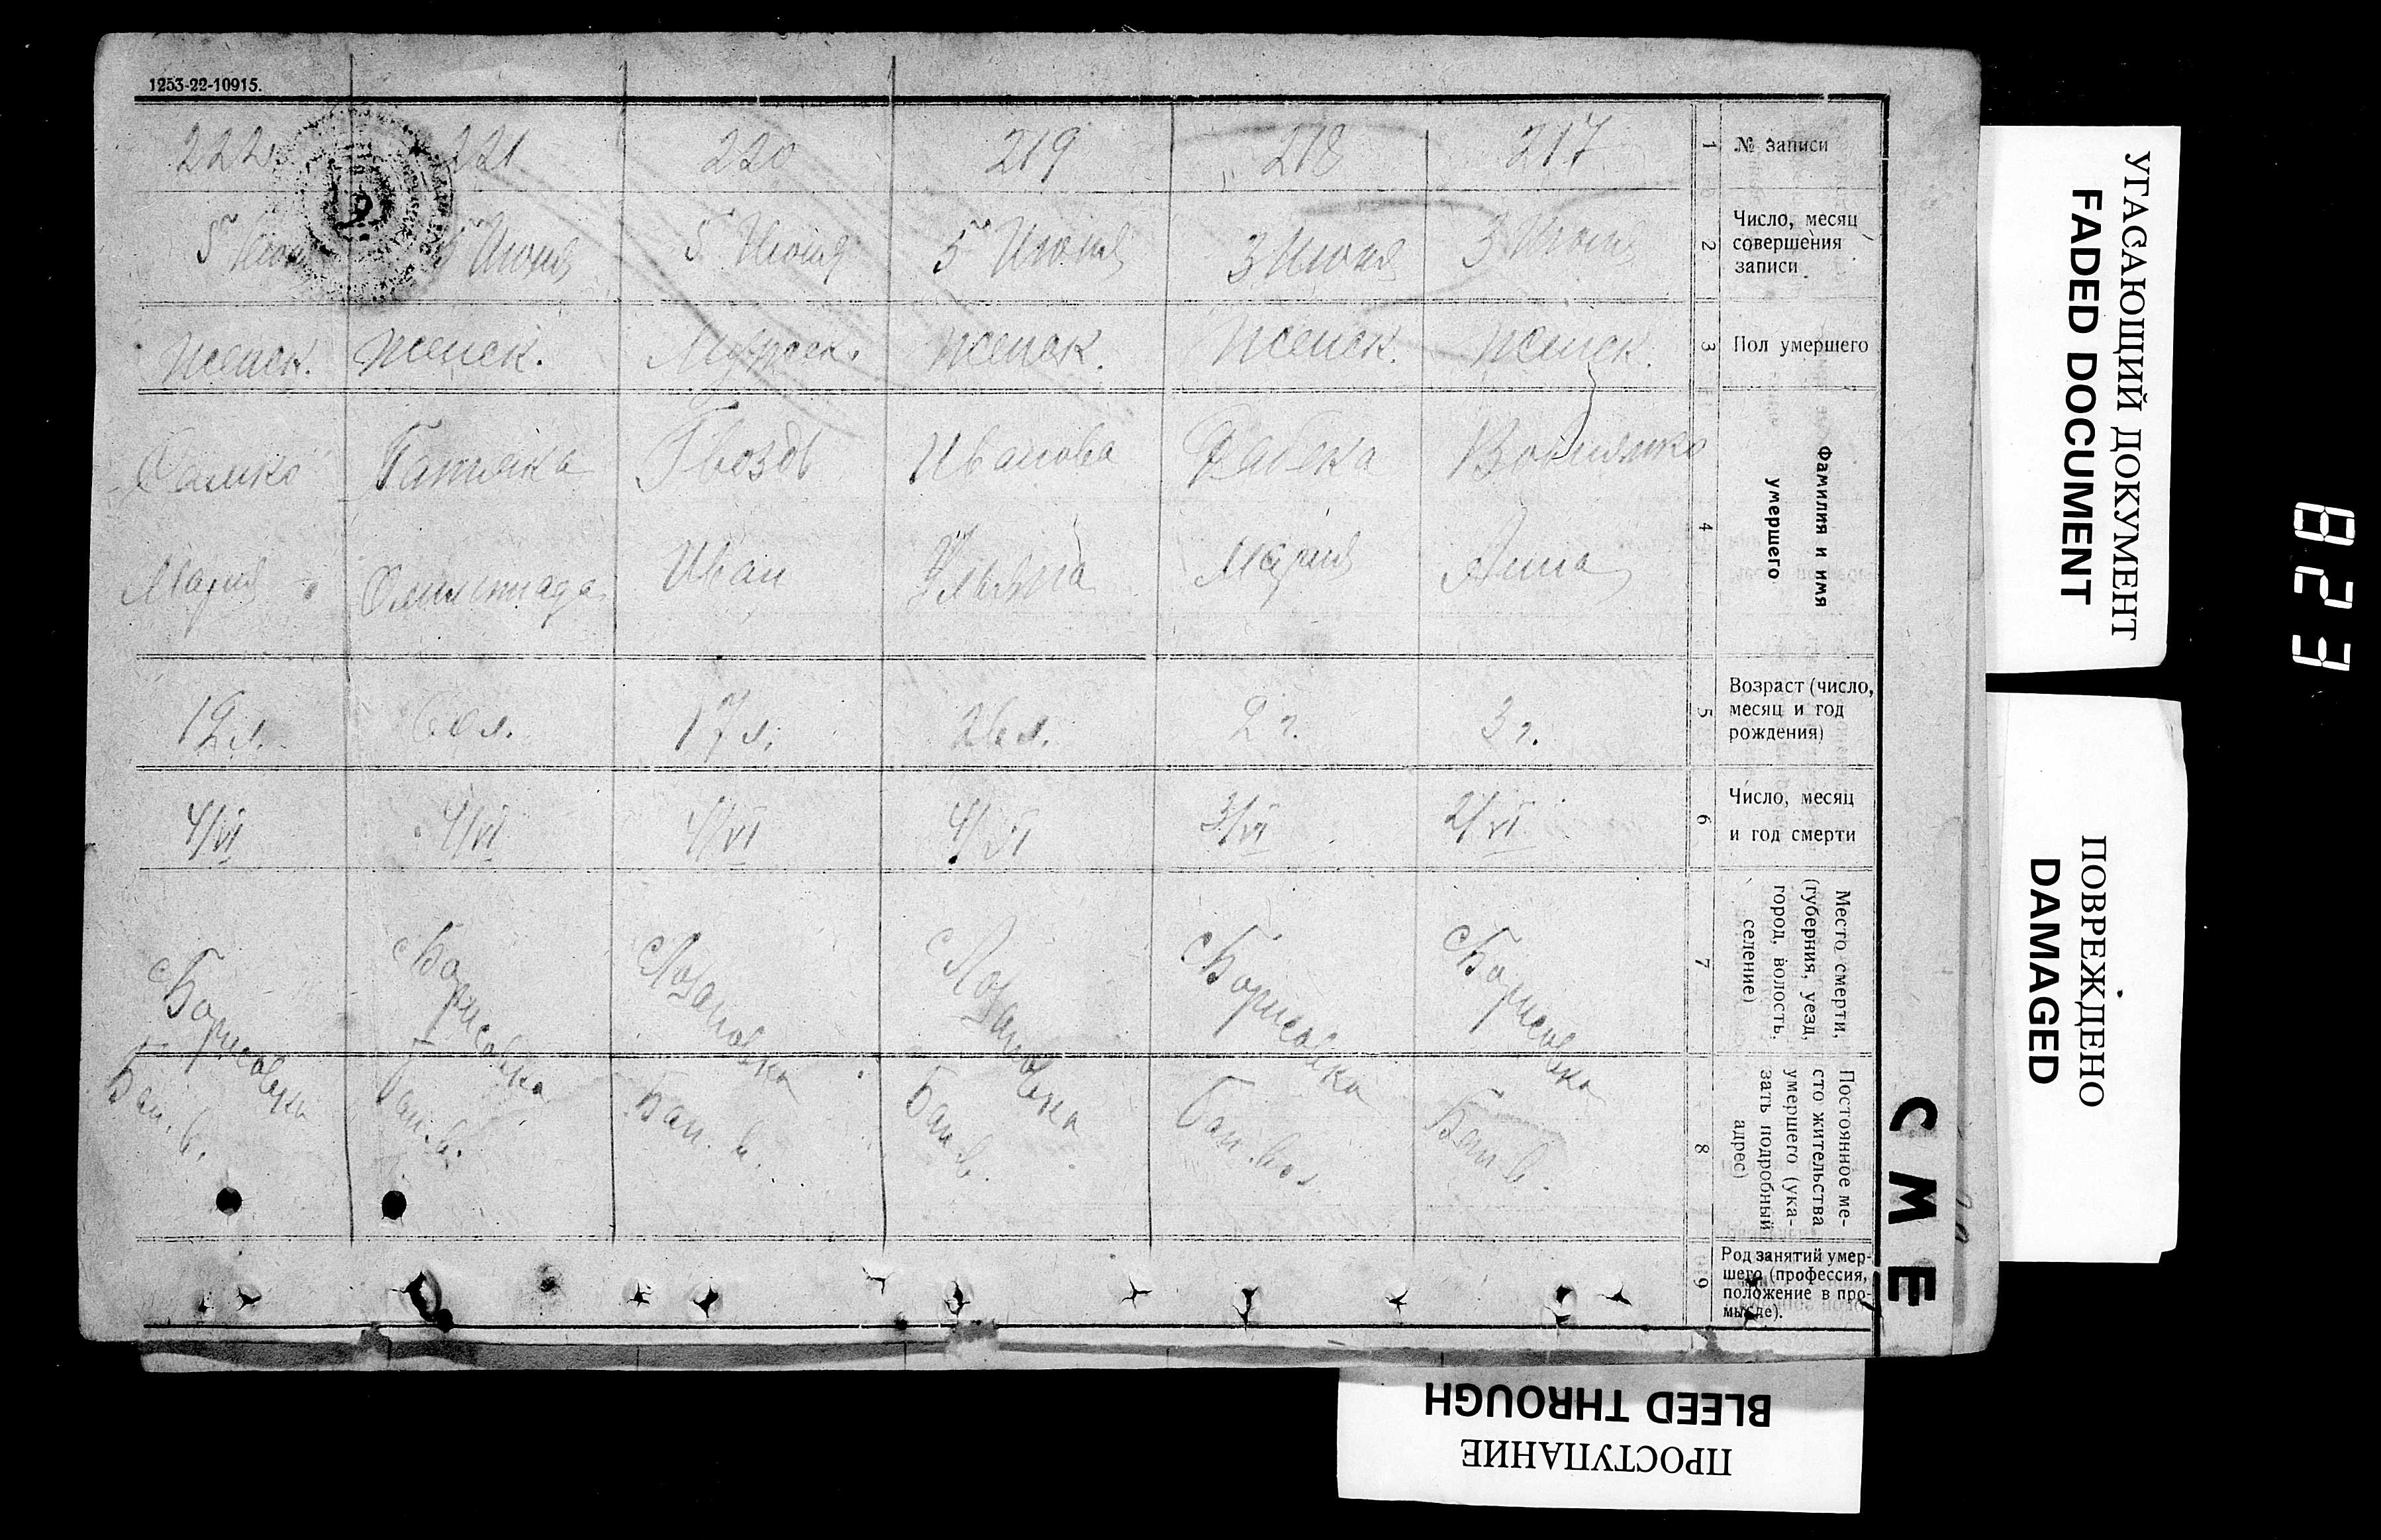 1253-22-10915.
222 221 220 219 218 217 1 № записи
5 5 Июня 5 Июня 5 Июня 3 Июня 3 Июня 2 Число, месяц совершения записи
Женск. Женск. Мужск. Женск. Женск. Женск. 3 Пол умершего
Гвоздь Иванова 4 Фамилия и имя умершего
Мария Иван Ульяна Мария Анна
12 л. 60 л. 17 л. 26 л. 2 г. 3 г. 5 Возраст (число, месяц и год рождения)
4/VI 4/VI 4/VI 4/VI 3/VI 2/VI 6 Число, месяц и год смерти
с Борисовка с Борисовка с Лозановка с Лозановка с Борисовка с Борисовка 7 Место смерти, (губерния, уезд, город, волость, селение)
Бан. в. Бан. в. Бан. в. Бан. в. Бан. вол. Бан. в. 8 Постоянное место жительства умершего (указать подробный адрес)
9 Род занятий умершего (профессия, положение в промысле).
СМЕ
УГАСАЮЩИЙ ДОКУМЕНТ
FADED DOCUMENT
ПОВРЕЖДЕНО
DAMAGED
ПРОСТУПАНИЕ
BLEED THROUGH
823